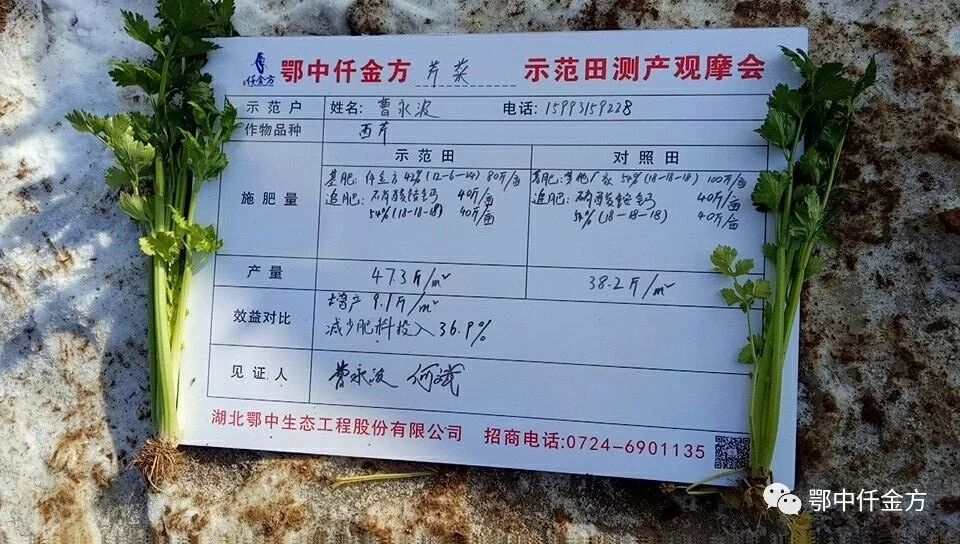 仟金方
鄂中仟金方 芹菜 示范田测产观摩会
示范户 姓名: 曹永波 电话: 15993159228
作物品种 西芹
施肥量 示范田 对照田
基肥: 仟金方 42% (12-6-24) 80斤/亩 基肥: 其他厂家 54% (18-18-18) 100斤/亩
追肥: 硝酸铵钙 40斤/亩 追肥: 硝酸铵钙 40斤/亩
54% (18-18-18) 40斤/亩 54% (18-18-18) 40斤/亩
产量 47.3斤/m² 38.2斤/m²
效益对比 增产 9.1斤/m²
减少肥料投入 36.9%
见证人 曹永波 何斌
湖北鄂中生态工程股份有限公司 招商电话:0724-6901135
鄂中仟金方